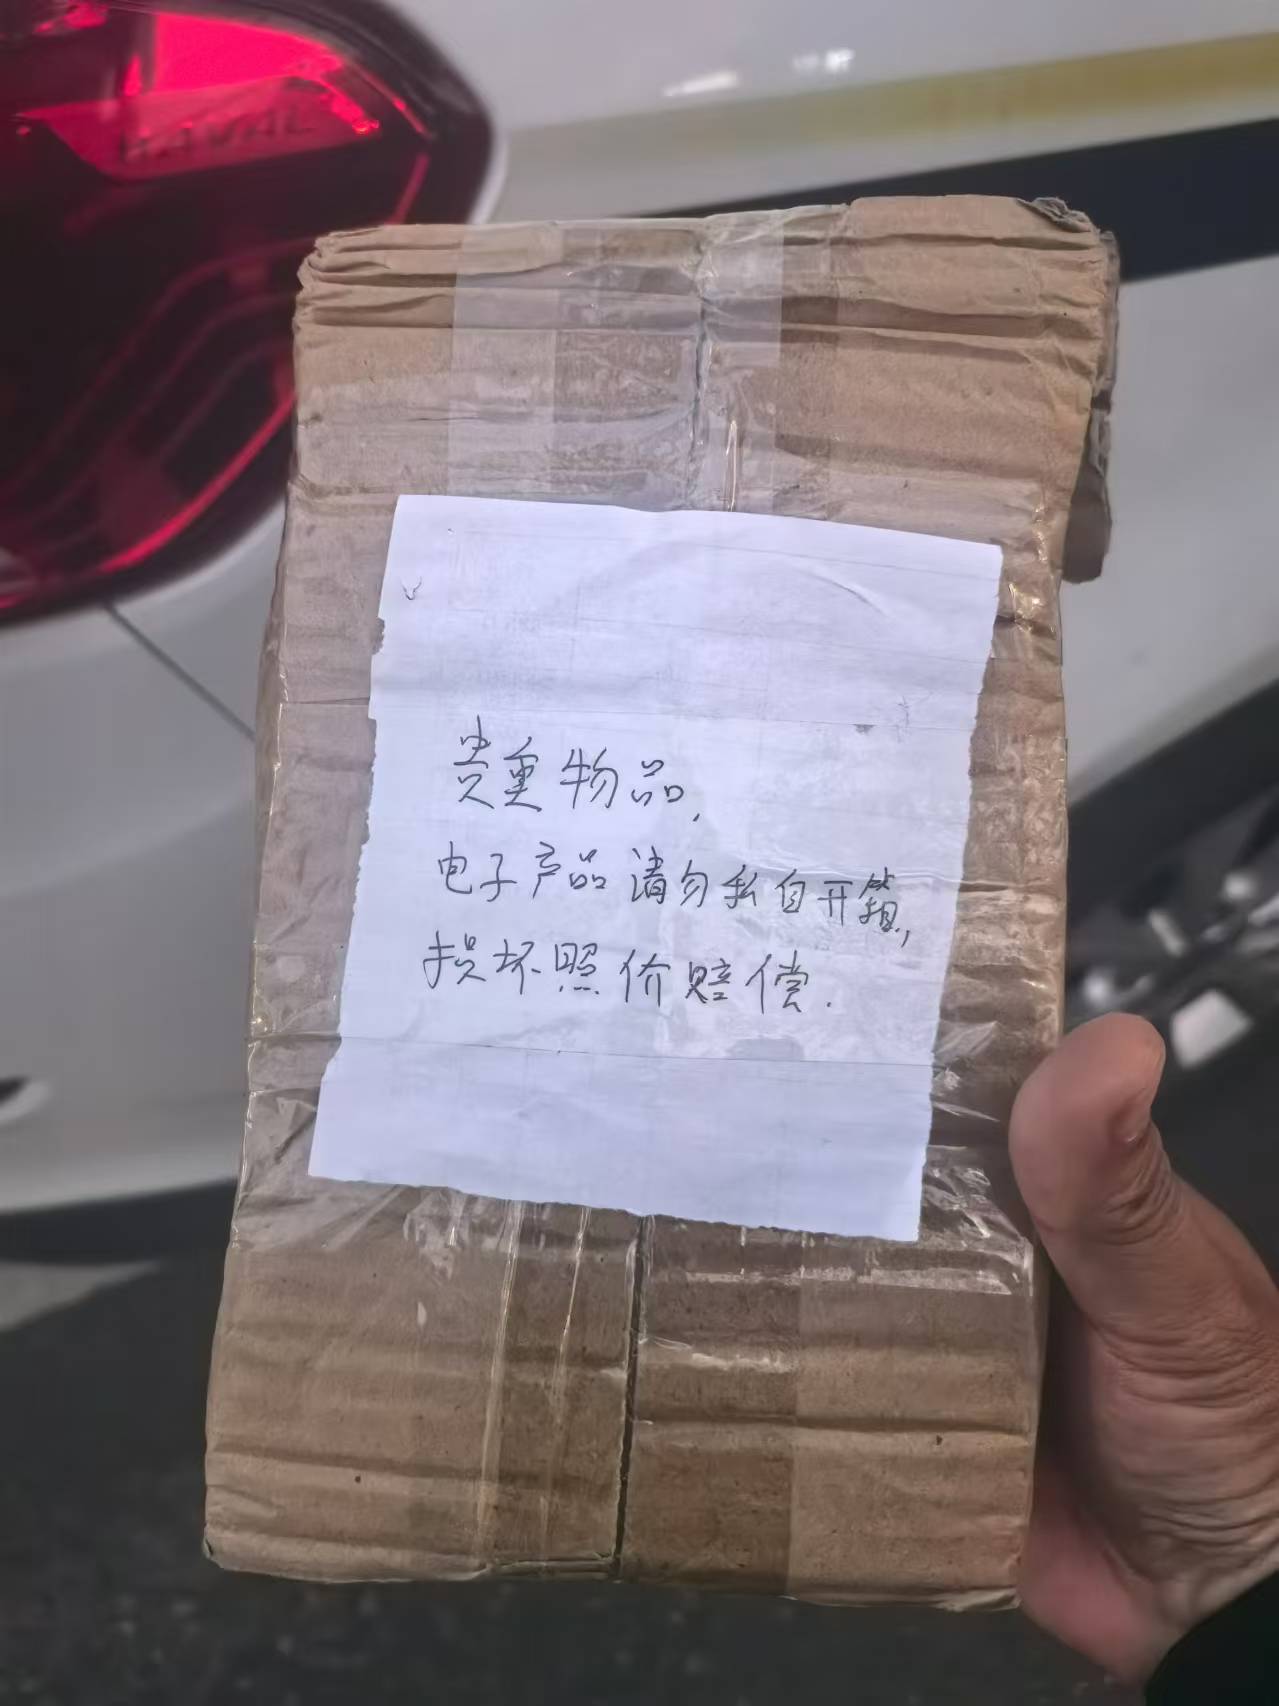 HAVAL
贵重物品,
电子产品请勿私自开箱,
损坏照价赔偿.